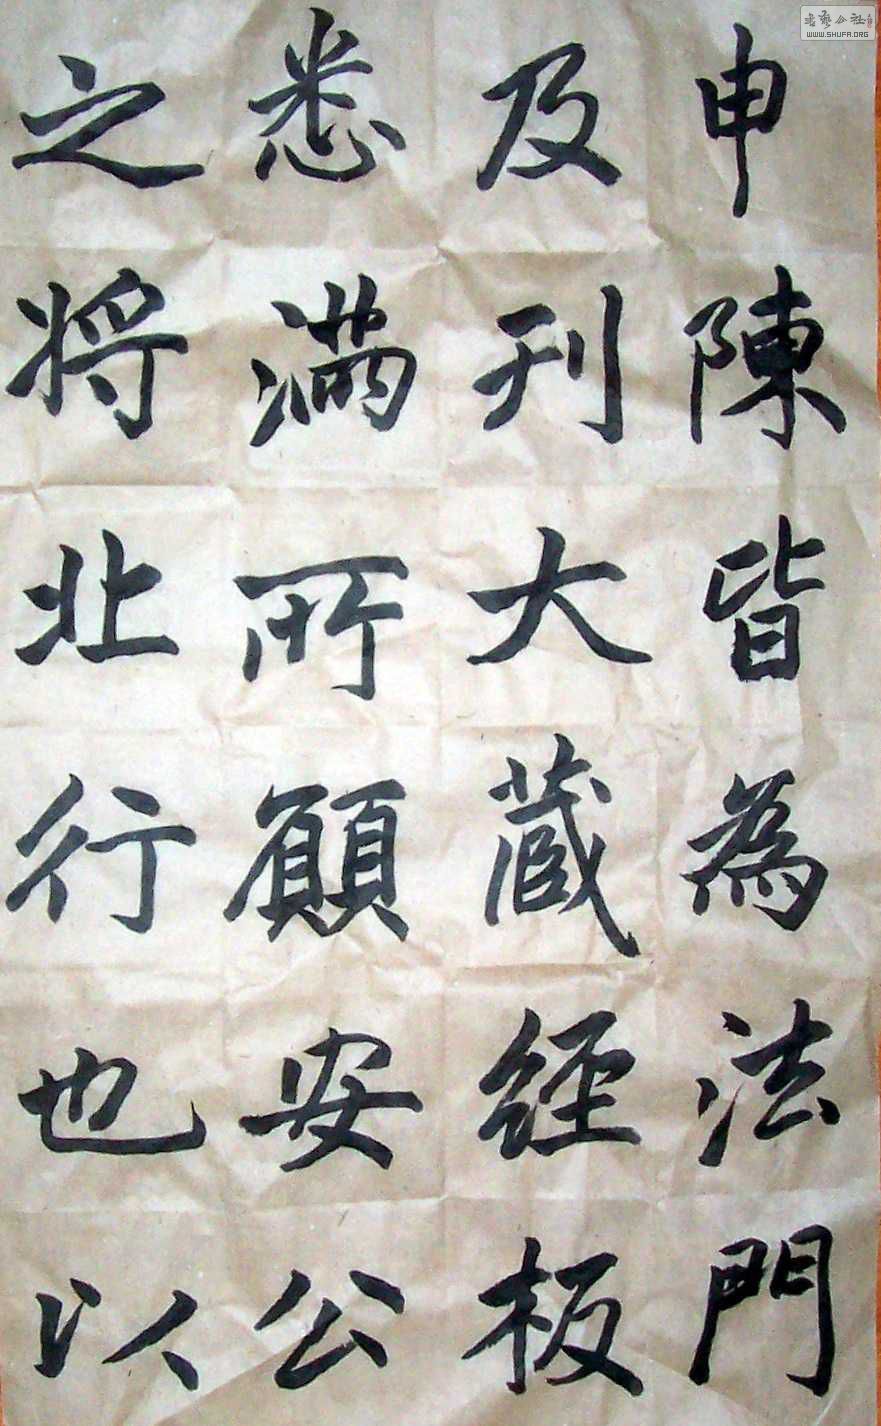 申陳皆為法門
及刊大蔵經板
悉滿所願安公
之將北行也以
WWW.SHUFA.ORG